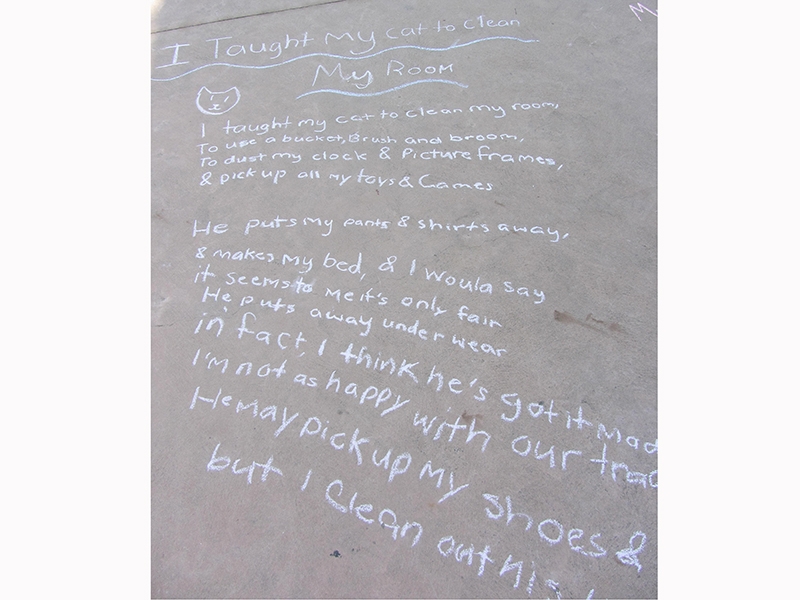 M
I Taught My cat to Clean
My Room
I taught my cat to clean my room,
To use a bucket, Brush and broom,
To dust my clock & Picture frames,
& pick up all my toys & Games
He puts my pants & shirts away,
& makes my bed, & I Would say
it seems to me it's only fair
He puts away under wear
in fact, I think he's got it mad
I'm not as happy with our trad
He may pick up my shoes &
but I Clean out his